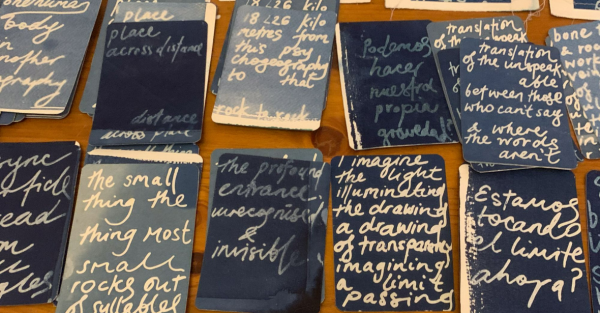 body
in
another
ography
place
place
across distance
distance
across place
18 226 kilo
metres from
this psy
chogeography
to that
rock to rock
Podemos
hacer
nuestra
propia
gravedad?
translation
of the unspeak
translation
of the unspeak
able,
between those
who can't say
& where
the words
aren't
bone
& a
work
sync
tide
read
the small
thing the
thing most
small
rocks out
of syllables
the profound
entrance
unrecognised
&
invisible
I imagine
the light
illuminating
the drawing
a drawing
of transparency
imagining
a limit
passing
Estamos
tocando
el limite
ahora?